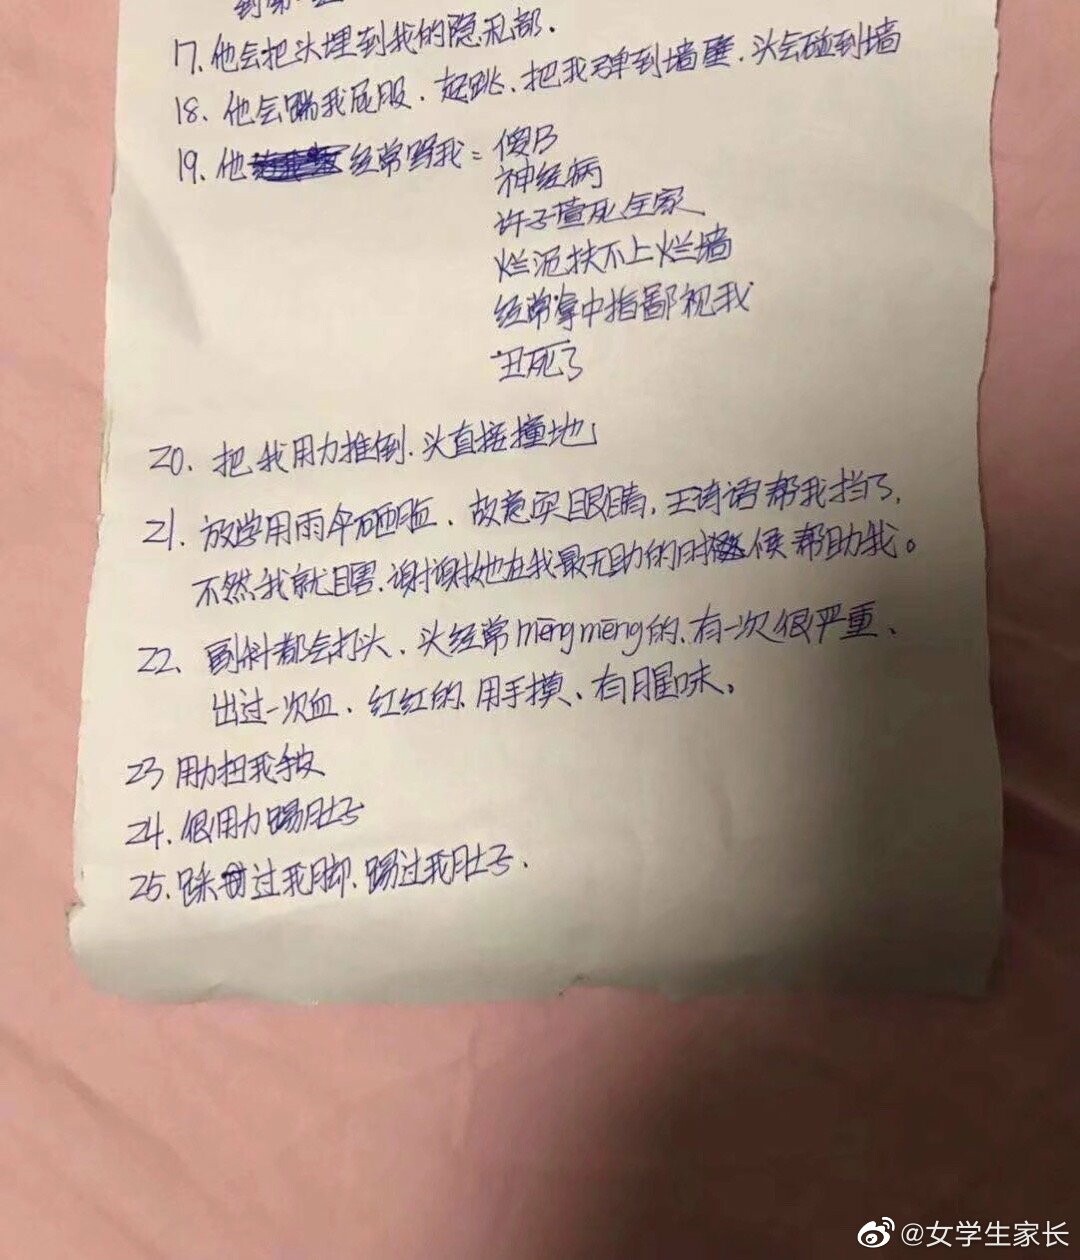 17、他会把头埋到我的隐私部.
18、他会踢我屁股、起跳、把我弹到墙壁、头会碰到墙
19、他 经常骂我: 傻B
神经病
许子 死全家
烂泥扶不上烂墙
经常拿中指鄙视我
丑死了
20、把我用力推倒.头直接撞地
21、放学用雨伞砸脸、故意 眼睛,王诗 帮我挡了,
不然我就瞎.谢谢她在我最无助的时候帮助我。
22、副科都会打头、头经常mēngmēng的、有一次很严重、
出过一次血、红红的、用手摸、有腥味。
23 用力扭我手皮
24、很用力踢肚子
25、踩过我脚、踢过我肚子、
@女学生家长